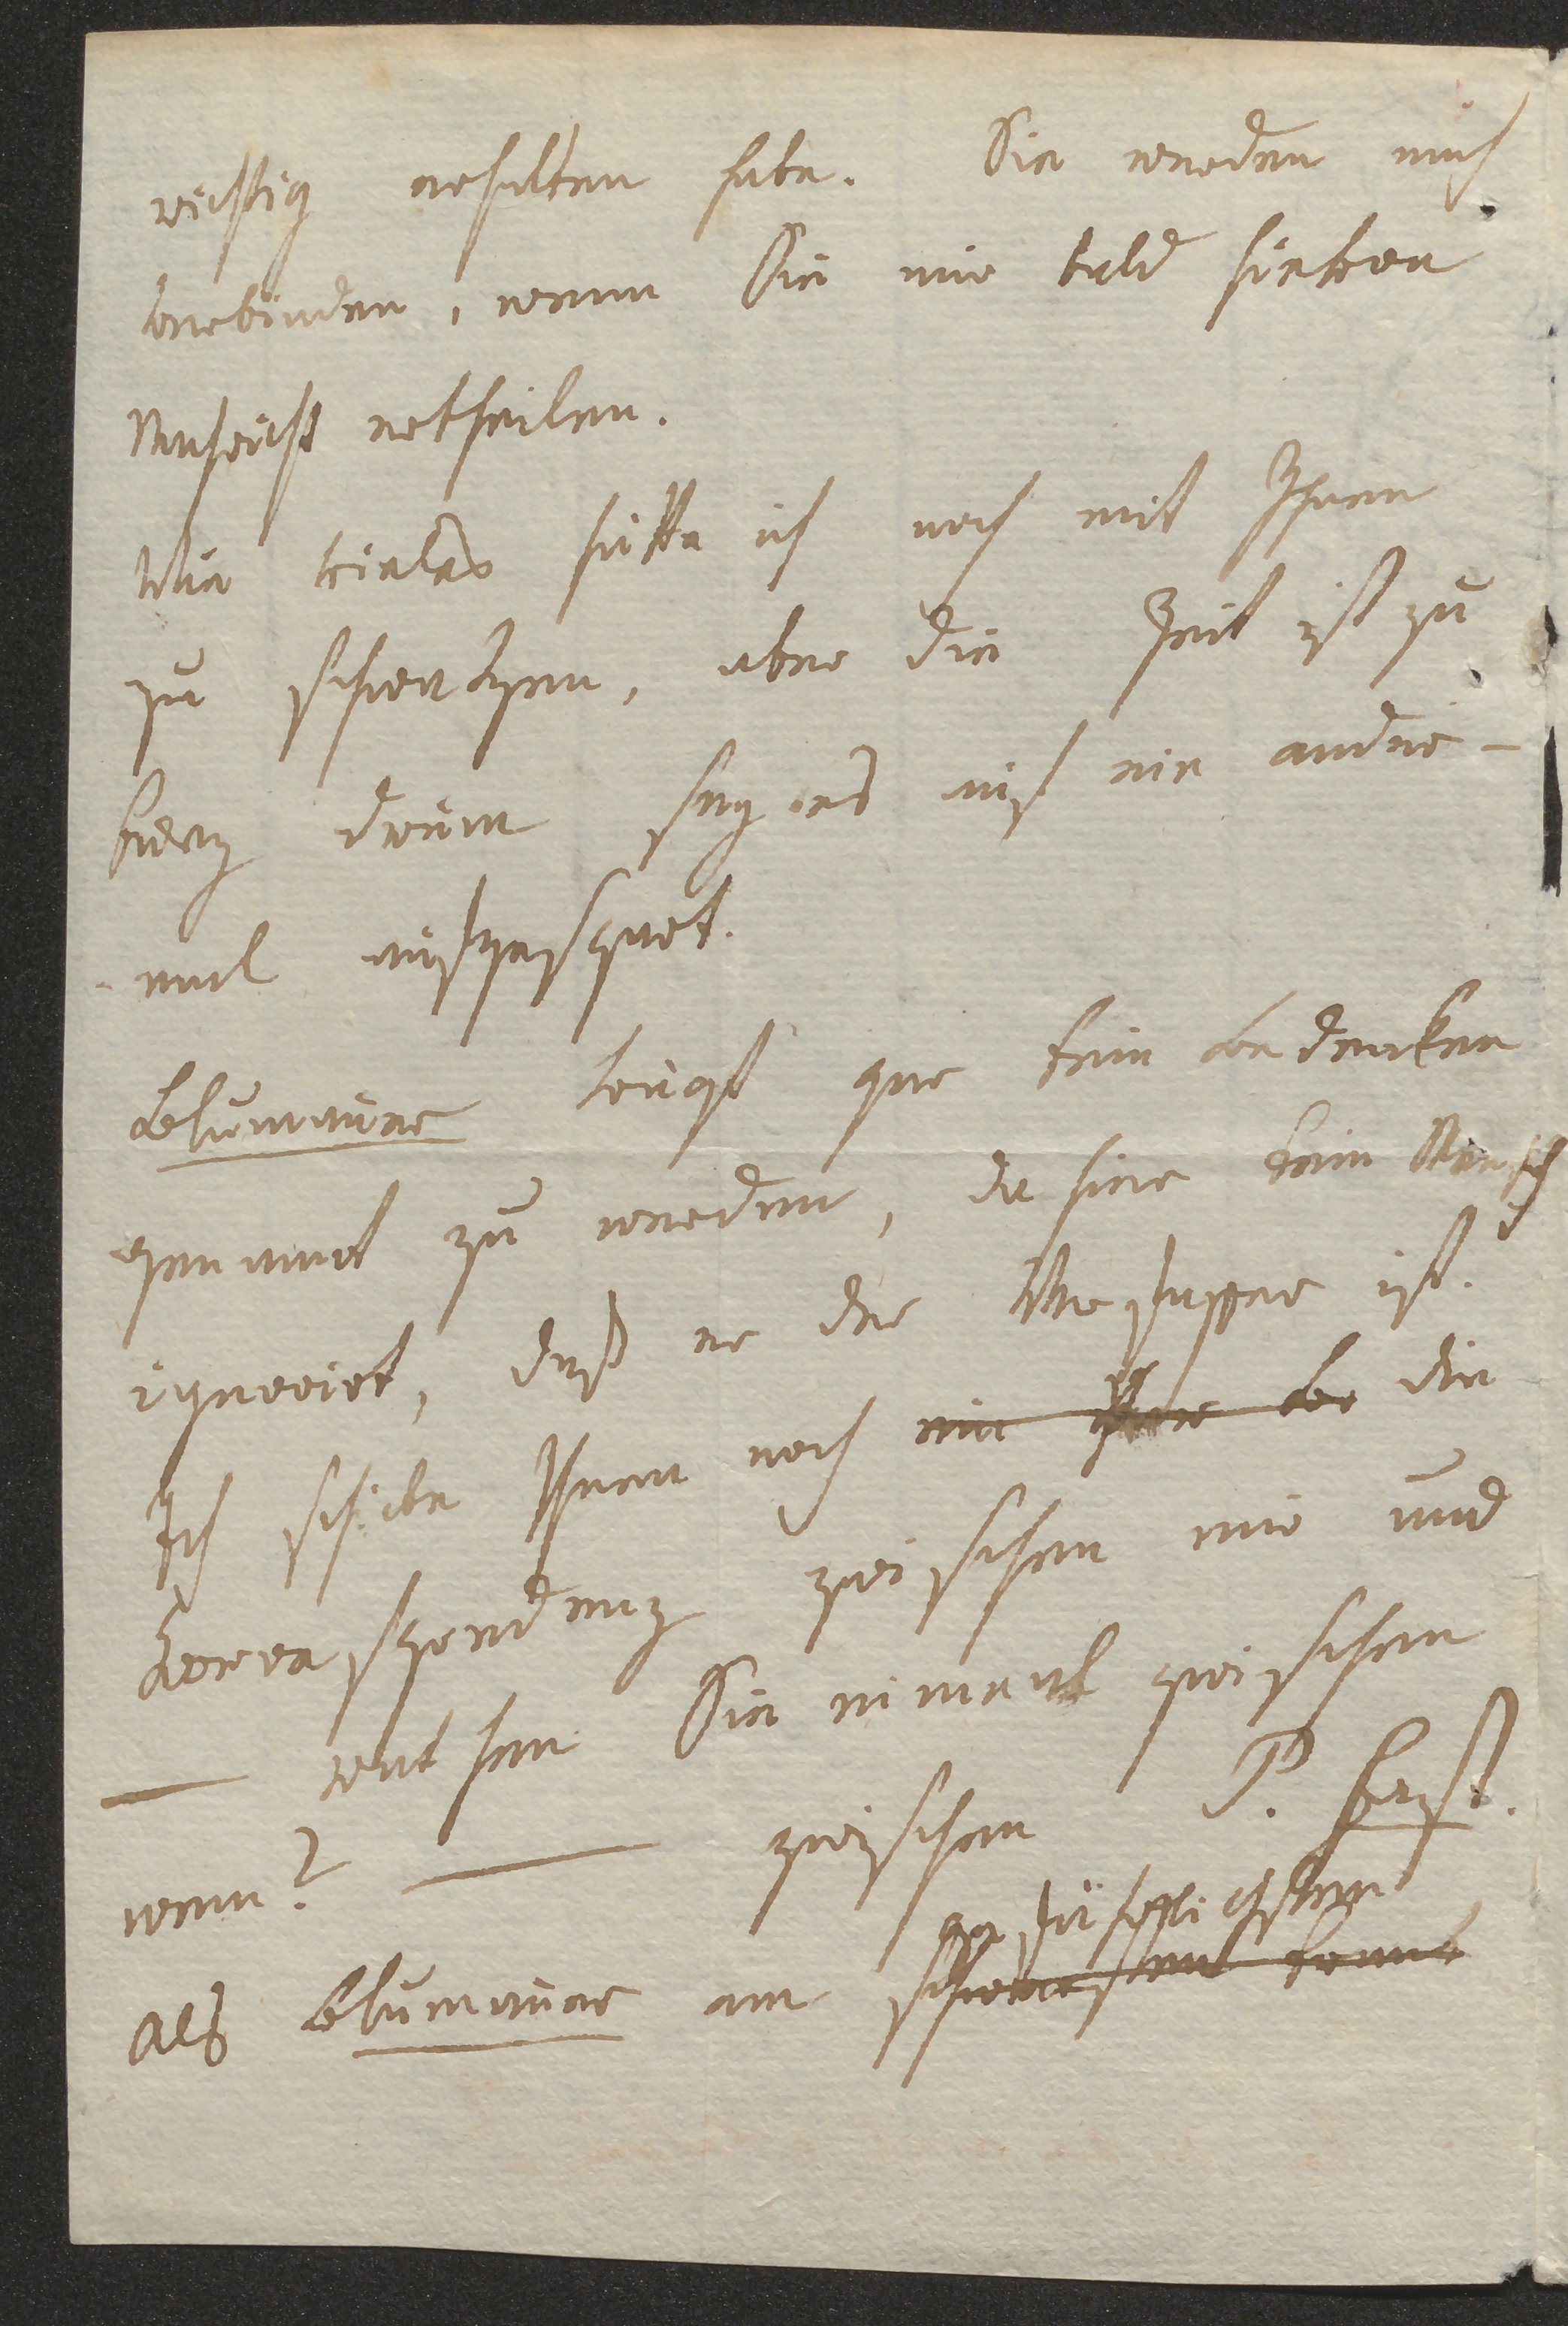 richtig erhalten habe. Sie werden mich
verbinden, wenn Sie mir bald hierüber
Nachricht ertheilen.
Wie vieles hätte ich noch mit Ihnen
zu schwatzen, aber die Zeit ist zu
kurz drum sey es auf ein ander-
mal aufgespart.
Blumauer trägt gar kein Bedenken
genannt zu werden, da hier kein Mensch
ignorirt, daß er der Verfasser ist.
Ich schicke Ihnen noch die
Korrespondenz zwischen mir und
— rathen Sie einmal zwischen
wem? — zwischen P. Fast.
Als Blumauer am